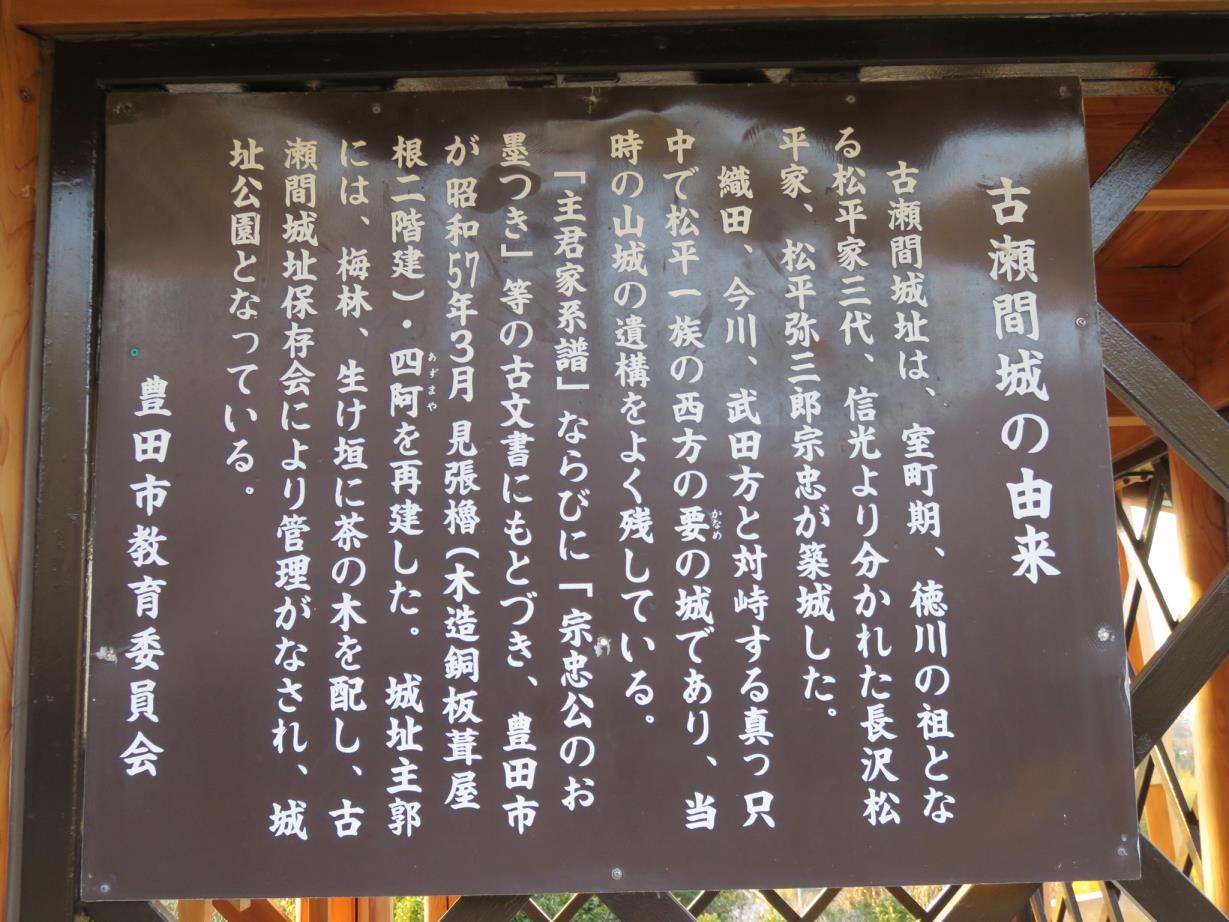 古瀬間城の由来
古瀬間城址は、室町期、徳川の祖とな
る松平家三代、信光より分かれた長沢松
平家、松平弥三郎宗忠が築城した。
織田、今川、武田方と対峙する真っ只
中で松平一族の西方の要かなめの城であり、当
時の山城の遺構をよく残している。
「主君家系譜」ならびに「宗忠公のお
墨つき」等の古文書にもとづき、豊田市
が昭和57年3月見張櫓(木造銅板葺屋
根二階建)・四阿あずまやを再建した。城址主郭
には、梅林、生け垣に茶の木を配し、古
瀬間城址保存会により管理がなされ、城
址公園となっている。
豊田市教育委員会